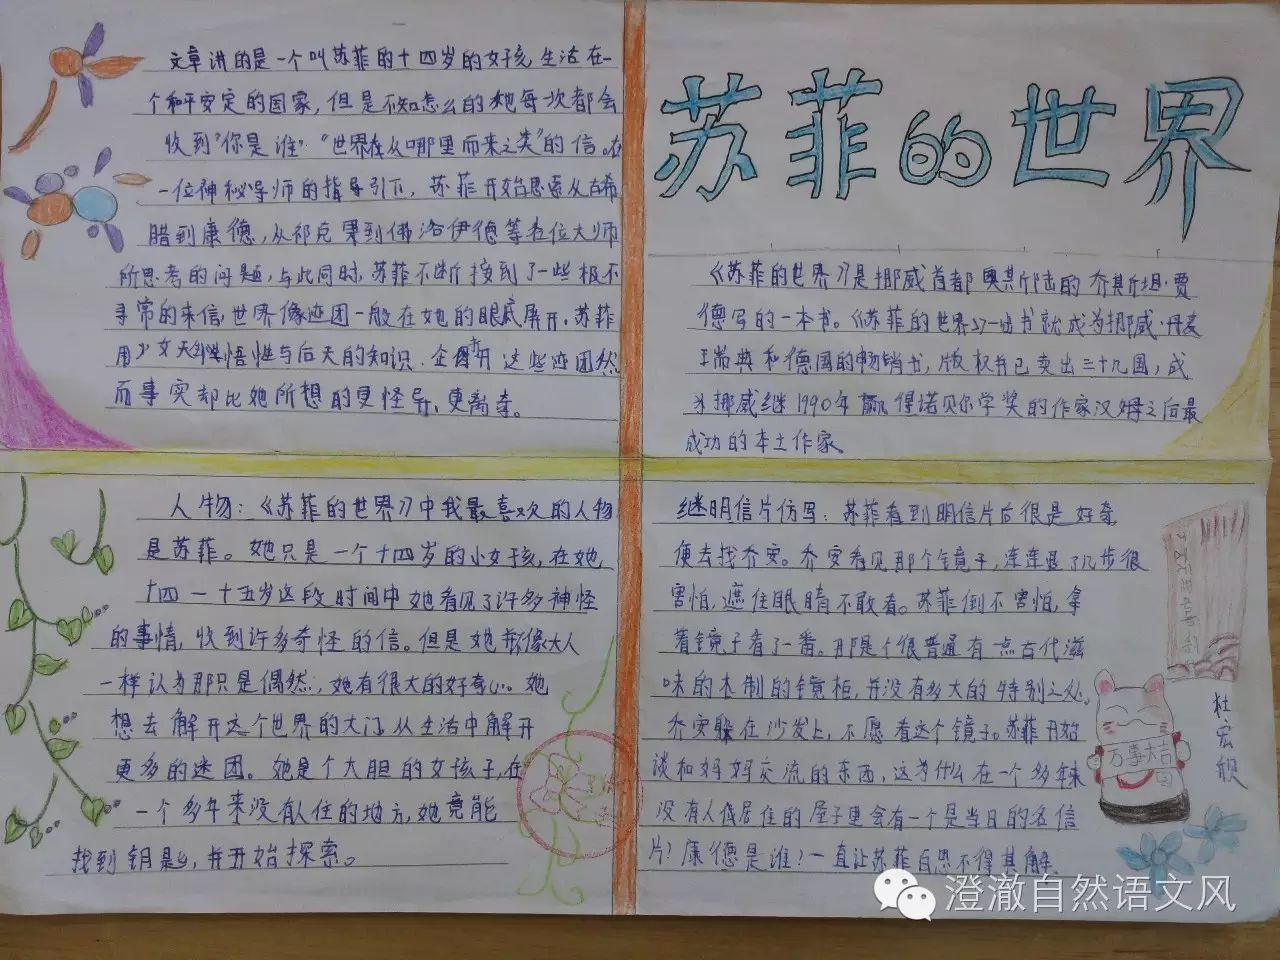 苏菲的世界
文章讲的是一个叫苏菲的十四岁的女孩,生活在一
个和平安定的国家,但是不知怎么的她每一次都会
收到“你是谁”“世界在从哪里而来之类”的信。在
一位神秘导师的指导引下,苏菲开始思索从古希
腊到康德,从祁克果到佛洛伊德等各位大师
所思考的问题,与此同时,苏菲不断接到了一些极不
寻常的来信,世界像迹团一般在她的眼底展开。苏菲
用少女天生悟性与后天的知识,企图开这些迹团然
而事实却比她所想的更怪异、更离奇。
《苏菲的世界》是挪威首都奥斯陆的乔斯坦·贾
德写的一本书。《苏菲的世界》一出书就成为挪威·丹麦
瑞典和德国的畅销书,版权并已卖出三十九国,成
为挪威继1990年赢得诺贝尔学奖的作家汉姆之后最
成功的本土作家。
人物:《苏菲的世界》中我最喜欢的人物
是苏菲。她只是一个十四岁的小女孩,在她
十四一十五岁这段时间中她看见了许多神怪
的事情,收到许多奇怪的信。但是她并不像大人
一样认为那只是偶然,她有很大的好奇心。她
想去解开这个世界的大门,从生活中解开
更多的迷团。她是个大胆的女孩子,在
一个多年来没有人住的地方,她竟能
找到钥匙,并开始探索。
继明信片仿写:苏菲看到明信片后很是好奇,
便去找乔安。乔安看见那个镜子,连连退了几步很
害怕,遮住眼睛不敢看。苏菲倒不害怕,拿
着镜子看了一番。那是个很普通有一点古代滋
味的木制的镜柜,并没有多大的特别之处。
乔安躲在沙发上,不愿看这个镜子。苏菲开始
谈和妈妈交流的东西,这为什么在一个多年来
没有人居住的屋子里会有一个是当日的名信
片?康德是谁?一直让苏菲百思不得其解
万事大吉
杜宏舰
澄澈自然语文风